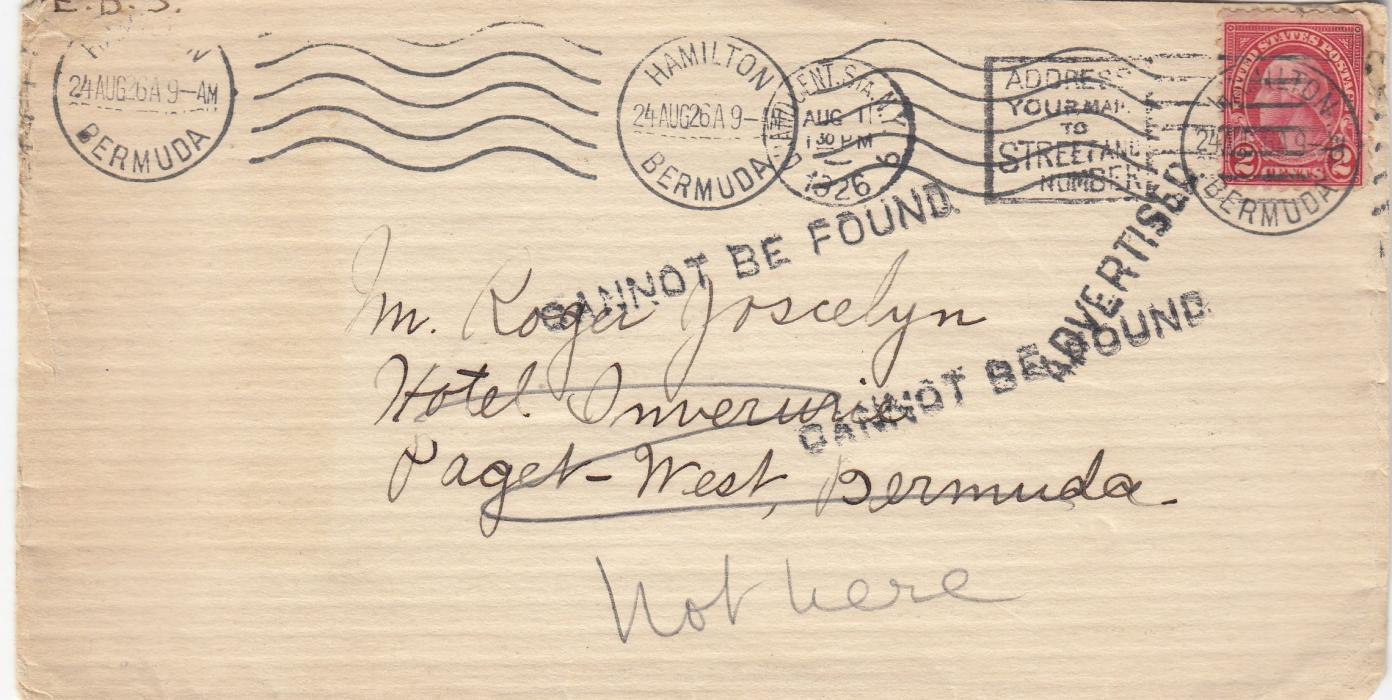 E.B.S.
HAMILTON
24 AUG 26 A 9-AM
BERMUDA
HAMILTON
24 AUG 26 A 9-
BERMUDA
GRAND CENT. STA. N.Y.
AUG 11
1 30 PM
1926
ADDRESS
YOUR MAIL
TO
STREET AND
NUMBER
UNITED STATES POSTAGE
2 CENTS 2
HAMILTON
BERMUDA
CANNOT BE FOUND.
ADVERTISED
CANNOT BE FOUND.
Mr. Roger Joscelyn
Hotel Inverurie
Paget-West, Bermuda.
Not here